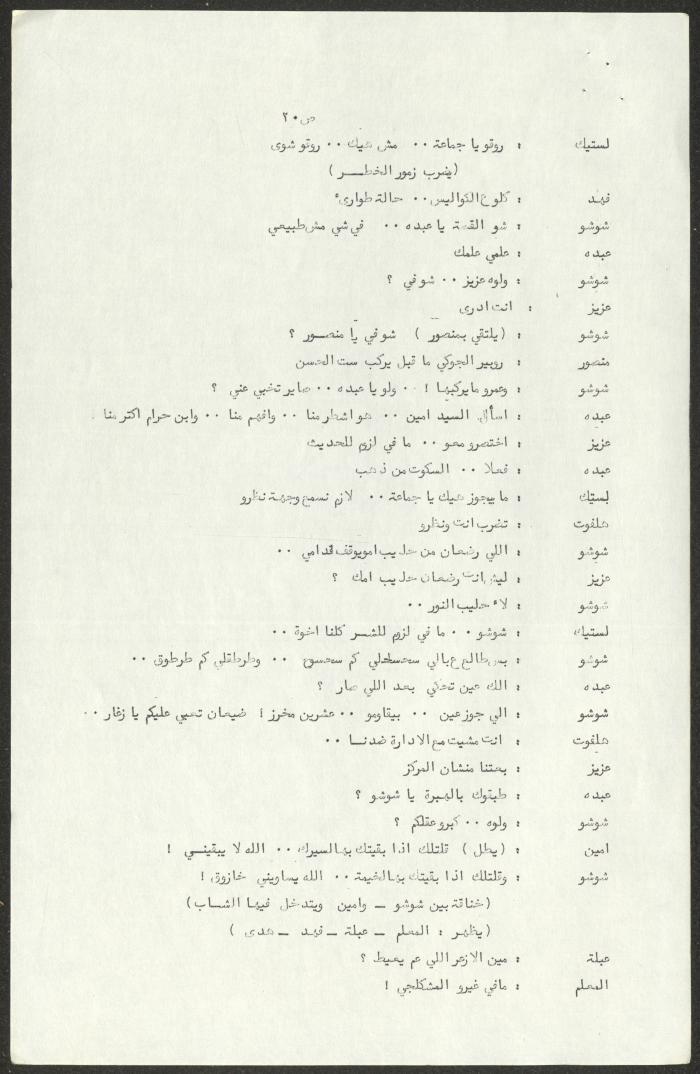 ص ٢٠
لستيك : روقو يا جماعة ٠٠ مش هيك ٠٠ روقو شوى
(يضرب زمور الخطـــر )
فهد : كلو ع الكواليس ٠٠ حالة طوارىء
شوشو : شو القصة يا عبده ٠٠ في شي مش طبيعي
عبده : علمي علمك
شوشو : ولوه عزيز ٠٠ شو في ؟
عزيز : انت ادرى
شوشو : (يلتقي بمنصور ) شو في يا منصــور ؟
منصور : روبير الجوكي ما قبل يركب ست الحسن
شوشو : وعمرو ما يركبها ! ٠٠ ولو يا عبده ٠٠ صاير تخبي عني ؟
عبده : اسأل السيد امين ٠٠ هو اشطر منا ٠٠ وافهم منا ٠٠ وابن حرام اكتر منا ٠
عزيز : اختصرو معو ٠٠ ما في لزوم للحديث
عبده : فعلا ٠٠ السكوت من ذهب
لستيك : ما بيجوز هيك يا جماعة ٠٠ لازم نسمع وجهة نظرو
هلفوت : تضرب انت ونظرو
شوشو : اللي رضعان من حليب امو يوقف قدامي ٠٠
عزيز : ليش انت رضعان حليب امك ؟
شوشو : لاء حليب النور ٠٠
لستيك : شوشو ٠٠ ما في لزوم للشــر كلنا اخوة ٠٠
شوشو : بس طالع ع بالي سحسحلي كم سحسوح ٠٠ وطرطقلي كم طرطوق ٠٠
عبده : الك عين تحكي بعد اللي صار ؟
شوشو : الي جوز عين ٠٠ بيقاومو ٠٠ عشرين مخرز ! ضيعان تعبي عليكم يا زغار ٠٠
هلفوت : انت مشيت مع الادارة ضدنــا ٠٠
عزيز : بعتنا منشان المركز
عبده : طبتوك بالهبرة يا شوشو ؟
شوشو : ولوه ٠٠ كبرو عقلكم ؟
امين : (يطل ) قلتلك اذا بقيتك بهالسيرك ٠٠ الله لا يبقينــي !
شوشو : وقلتلك اذا بقيتك بهالخيمة ٠٠ الله يساويني خازوق !
(خناقة بين شوشو ــ وامين ويتدخل فيها الشبــاب)
(يظهر : المعلم ــ عبلة ــ فهد ــ هدى )
عبلة : مين الازعر اللي عم يعيط ؟
المعلم : ما في غيرو المشكلجي !